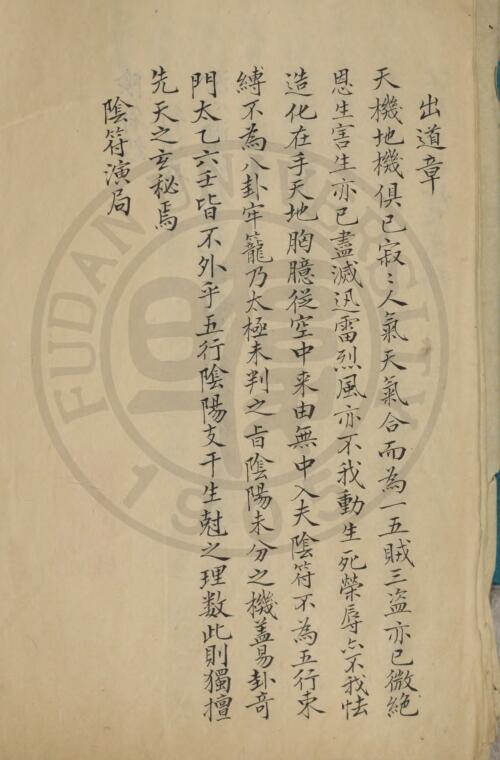 出道章
天機地機俱已寂〻人氣天氣合而為一五賊三盗亦已微絶
恩生害生亦已盡滅迅雷烈風亦不我動生死榮辱亦不我怯
造化在手天地胸臆從空中来由無中入夫陰符不為五行束
縛不為八卦牢籠乃太極未判之旨陰陽未分之機蓋易卦竒
門太乙六壬皆不外乎五行陰陽支干生尅之理数此則獨擅
先天之玄秘焉
陰符演局
FUDAN UNIVERSITY